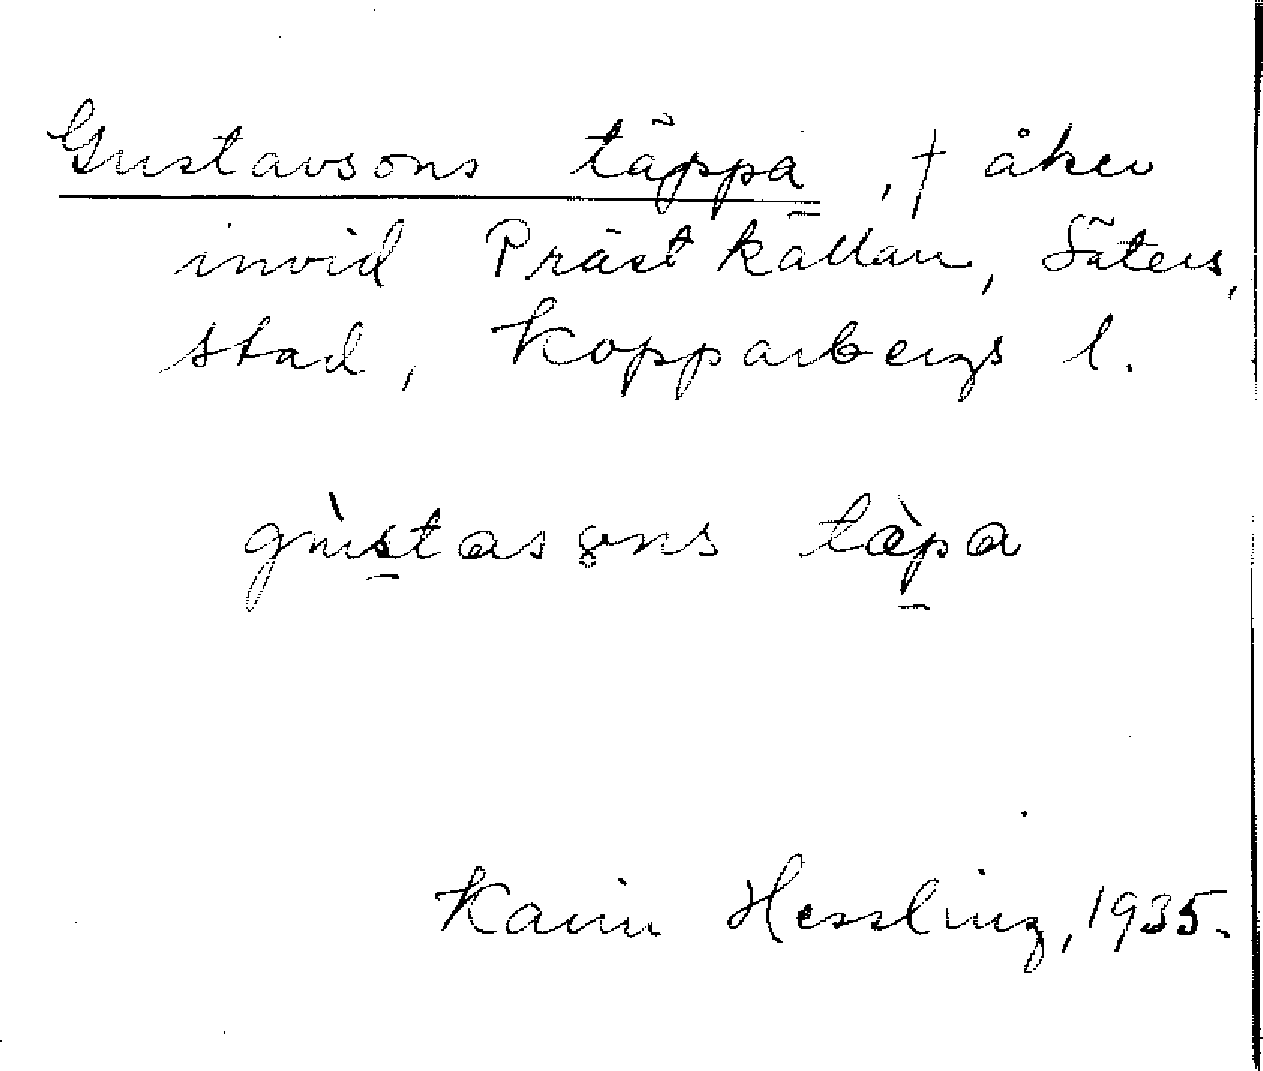 Gustavsons täppa, † åker
invid Prästkällan, Säters,
stad, Kopparbergs l.
gùstasons tæ̀pa
Karin Hessling, 1935.